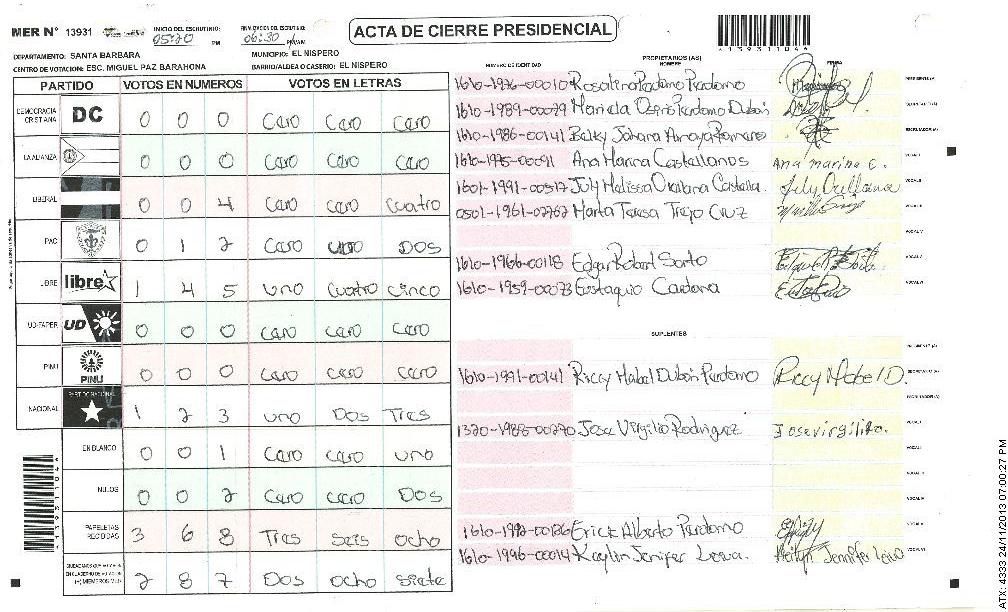 MER N° 13931 INICIO DEL ESCRUTINIO: 05:20 PM FINALIZACION DEL ESCRUTINIO: 06:30 PM/AM ACTA DE CIERRE PRESIDENCIAL
DEPARTAMENTO: SANTA BARBARA MUNICIPIO: EL NISPERO
CENTRO DE VOTACION: ESC. MIGUEL PAZ BARAHONA BARRIO/ALDEA O CASERIO: EL NISPERO
PARTIDO VOTOS EN NUMEROS VOTOS EN LETRAS
DEMOCRACIA CRISTIANA DC 0 0 0 Cero Cero Cero
LA ALIANZA 0 0 0 Cero Cero Cero
LIBERAL 0 0 4 Cero Cero Cuatro
PAC 0 1 2 Cero uno DOS
LIBRE libre 1 4 5 uno Cuatro cinco
UD-FAPER UD 0 0 0 Cero Cero Cero
PINU PINU 0 0 0 Cero Cero Cero
NACIONAL PARTIDO NACIONAL 1 2 3 uno Dos Tres
EN BLANCO 0 0 1 Cero Cero uno
NULOS 0 0 2 Cero Cero Dos
PAPELETAS RECIBIDAS 3 6 8 Tres seis ocho
2 8 7 Dos ocho siete
PROPIETARIOS (AS)
NUMERO DE IDENTIDAD NOMBRE FIRMA
1610-1976-00010 Rosalina Perdomo Perdomo PRESIDENTE (A)
1610-1989-00079 Mariela Osorio Perdomo Dubón SECRETARIO (A)
1610-1986-00141 Belky Johana Amaya Romero ESCRUTADOR (A)
1610-1975-00091 Ana Marina Castellanos Ana marina C. VOCAL I
1601-1991-00517 July Melissa Orellana Castella. July Orellana VOCAL II
0501-1961-02762 Marta Teresa Trejo Cruz
VOCAL IV
1610-1966-00118 Edgar Robert Sorto VOCAL V
1610-1959-00073 Eustaquio Cardona VOCAL VI
SUPLENTES
PRESIDENTE (A)
1610-1991-00141 Riccy Mabel Dubon Perdomo Riccy Mabel D. SECRETARIO (A)
ESCRUTADOR (A)
1320-1988-00270 Jose Virgilio Rodriguez Jose virgilio. VOCAL I
VOCAL II
VOCAL IV
1610-1992-00126 Erick Alberto Perdomo VOCAL V
1610-1996-00014 Kaylin Jenifer Leiva. Jennifer Leiva VOCAL VI
ATX: 4333 24/11/2013 07:00:27 PM